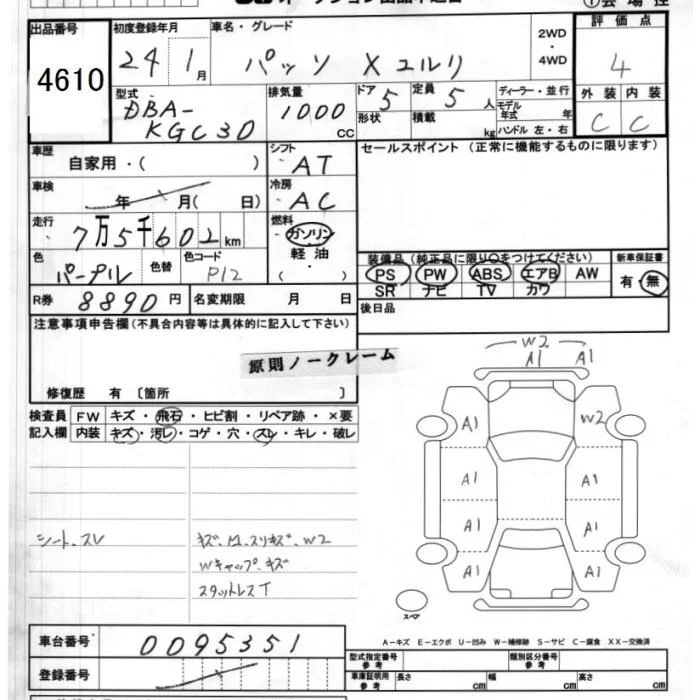 出品番号 4610
初度登録年月 24 1月
車名・グレード パッソ X ユルリ
2WD・4WD
評価点 4
外装 C 内装 C
型式 DBA-KGC30
排気量 1000 CC
ドア 5 形状
定員 5 人 積載 kg
ディーラー・並行
モデル年式 年
ハンドル 左・右
車歴 自家用・( )
シフト AT
セールスポイント (正常に機能するものに限ります)
車検 年 月( 日)
冷房 AC
走行 7万5千602 km
燃料 ガソリン・軽油・
色 パープル 色替 色コード P12
装備品 (純正品に限り○をつけてください) 新車保証書
PS PW ABS エアB AW 有・無
SR ナビ TV カワ
R券 8890円 名変期限 月 日
後日品
注意事項申告欄 (不具合内容等は具体的に記入して下さい)
原則ノークレーム
修復歴 有 〔箇所 〕
検査員 FW キズ・飛石・ヒビ割・リペア跡・×要
記入欄 内装 キズ・汚レ・コゲ・穴・スレ・キレ・破レ
W2
A1 A1
A1 W2
A1 A1
A1 A1
A1 A1
シート、スレ
キズ、A1、スリキズ、W2
Wキャップ、キズ
スタットレスT
スペア
車台番号 0095351
A-キズ E-エクボ U-凹み W-補修跡 S-サビ C-腐食 XX-交換済
登録番号
型式指定番号 参考 類別区分番号 参考
車庫証明用 参考 長さ cm 幅 cm 高さ cm